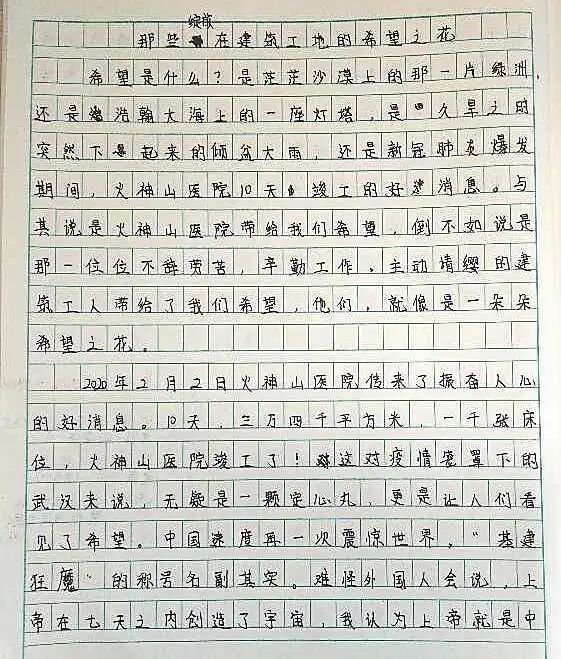 那些绽放在建筑工地的希望之花
希望是什么？是茫茫沙漠上的那一片绿洲，
还是浩翰大海上的一座灯塔，是久旱之时
突然下起来的倾盆大雨，还是新冠肺炎爆发
期间，火神山医院10天竣工的好消息。与
其说是火神山医院带给我们希望，倒不如说是
那一位位不辞劳苦，辛勤工作、主动请缨的建
筑工人带给了我们希望，他们，就像是一朵朵
希望之花。
2020年2月2日火神山医院传来了振奋人心
的好消息。10天，三万四千平方米，一千张床
位，火神山医院竣工了！这对疫情笼罩下的
武汉来说，无疑是一颗定心丸，更是让人们看
见了希望。中国速度再一次震惊世界，“基建
狂魔”的称号名副其实。难怪外国人会说，上
帝在七天之内创造了宇宙，我认为上帝就是中